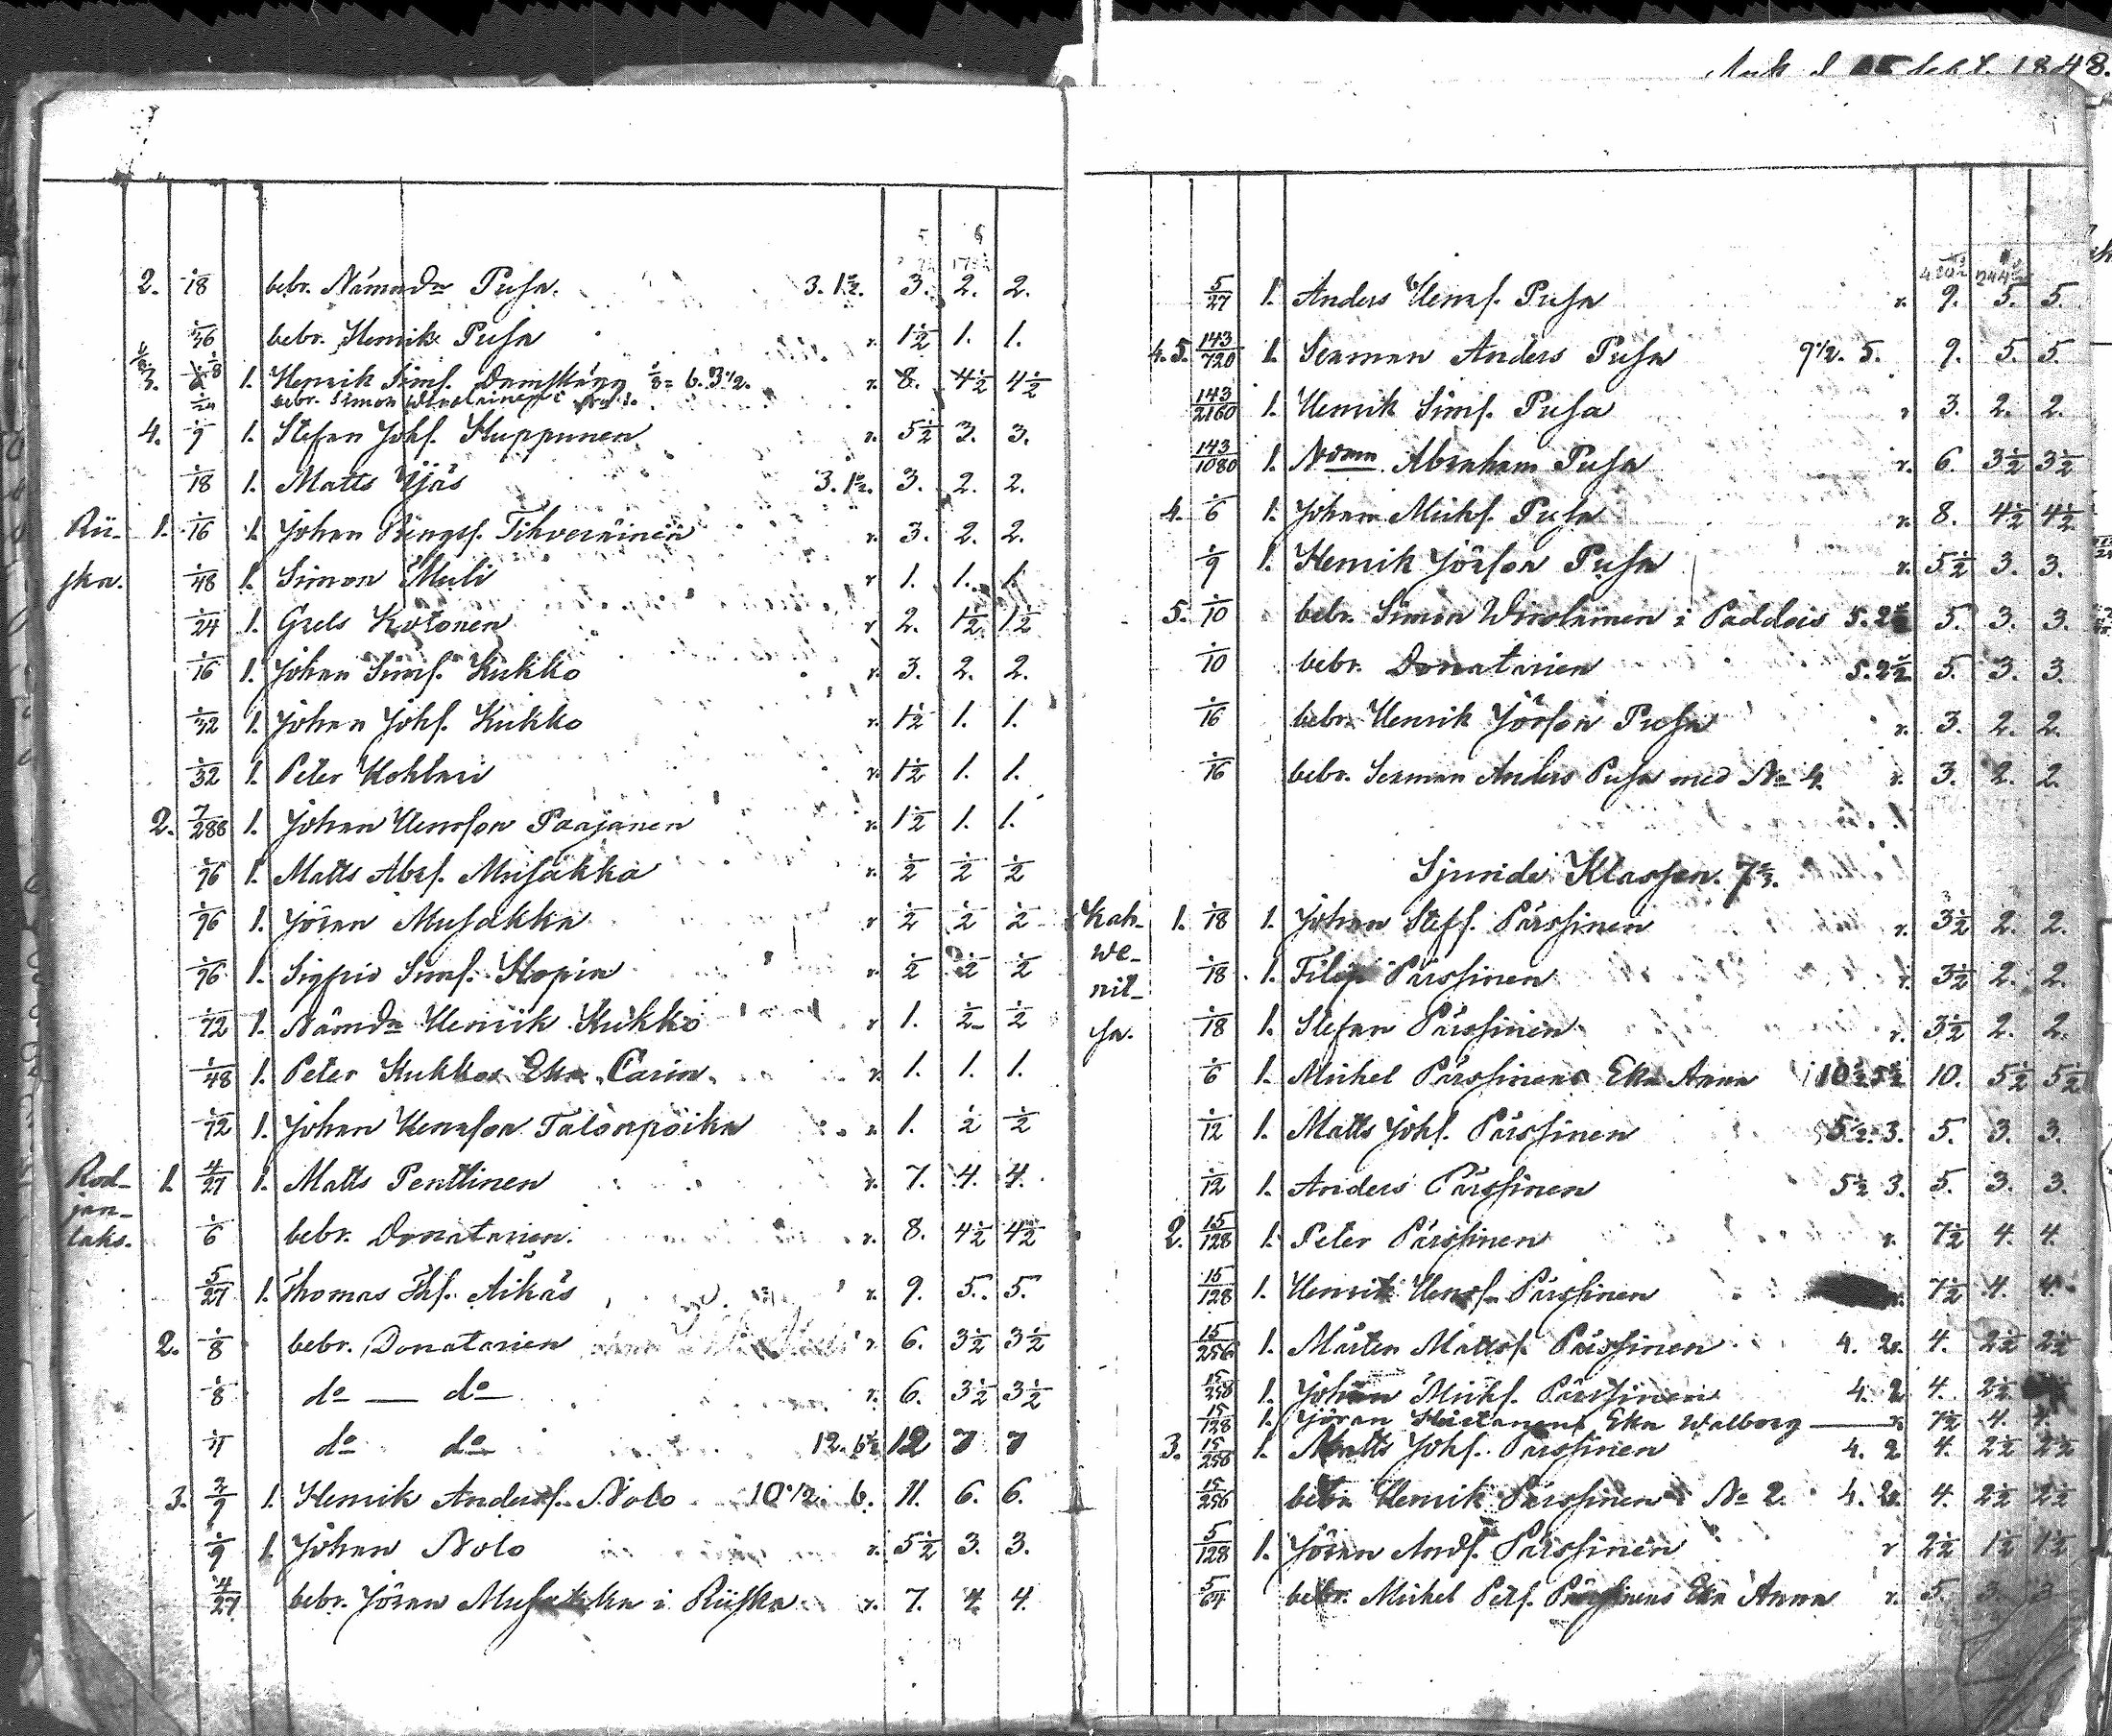 2. 1/18 bebr. Nämdn Pusa. 3. 1 1/2. 3. 2. 2.
1/36 bebr. Henrik Pusa r. 1 1/2 1. 1.
3. 1. Henrik Sims. Damskägg 1/8 = 6. 3 1/2. r. 8. 4 1/2 4 1/2
1/24 bebr. Simon
4. 1/9 1. Stefan Johs. Skuppunen r. 5 1/2 3. 3.
1/18 1. Matts Yjäs 3. 1 1/2. 3. 2. 2.
Rii- 1. 1/16 1. Johan Bengts. Tihveräinen r. 3. 2. 2.
ska. 1/48 1. Simon Muli r 1. 1. 1.
1/24 1. Grels Kotonen r 2. 1 1/2 1 1/2
1/16 1. Johan Sims. Kukko r. 3. 2. 2.
1/32 1. Johan Johs. Kukko r. 1 1/2 1. 1.
1/32 1. Peter Kohtari r. 1 1/2 1. 1.
2. 7/288 1. Johan Henrsson Paajanen r. 1 1/2 1. 1.
1/96 1. Matts Abrs. Musakka r. 1/2 1/2 1/2
1/96 1. Jöran Musakka r 1/2 1/2 1/2
1/96 1. Sigfrid Sims. Stopin r. 1/2 1/2 1/2
1/72 1. Nämdn Henrik Kukko r 1. 1/2 1/2
1/48 1. Peter Kukkos Eka Carin r. 1. 1. 1.
1/72 1. Johan Henrsson Talonpoika r. 1. 1/2 1/2
Rod- 1. 4/27 1. Matts Penttinen r. 7. 4. 4.
jan-
laks. 1/6 bebr. Donatarien r. 8. 4 1/2 4 1/2
5/27 1. Thomas Ths. Aikäs r. 9. 5. 5.
2. 1/8 bebr. Donatarien r 6. 3 1/2 3 1/2
1/8 do — do r. 6. 3 1/2 3 1/2
1/4 do do 12. 6 1/2 12 7 7
3. 2/9 1. Henrik Anders. Nolo 10 1/2. 6. 11. 6. 6.
1/9 1. Johan Nolo r. 5 1/2 3. 3.
4/27 bebr. Jöran Musakka i Riiska r. 7. 4. 4.
Sept. 1848.
5/27 1. Anders Henrs. Pusa r. 9. 5. 5.
4. 5. 143/720 1. Sexman Anders Pusa 9 1/2. 5. 9. 5. 5.
143/2160 1. Henrik Sims. Pusa r 3. 2. 2.
143/1080 1. Abraham Pusa r. 6 3 1/2 3 1/2
4. 1/6 1. Johan Michs. Pusa r. 8. 4 1/2 4 1/2
1/9 1. Henrik Jörson Pusa r. 5 1/2 3. 3.
5. 1/10 bebr. Simon Wirolainen i Paddois 5. 2 1/2 5. 3. 3.
1/10 bebr. Donatarien 5. 2 1/2 5. 3. 3.
1/16 bebr. Henrik Jörson Pusa r. 3. 2. 2.
1/16 bebr. Sexman Anders Pusa med No 4. r. 3. 2. 2.
Sjunde Klassen. 7 2/3.
Kah- 1. 1/18 1. Johan Steff. Pärssinen r. 3 1/2 2. 2.
we-
nit- 1/18 1. Filip Pärssinen r. 3 1/2 2. 2.
sa. 1/18 1. Stefan Pärssinen r. 3 1/2 2. 2.
1/6 1. Michel Pärssinens Eka Anna 10 1/2 5 1/2 10. 5 1/2 5 1/2
1/12 1. Matts Johs. Pärssinen 5 1/2. 3. 5. 3. 3.
1/12 1. Anders Pärssinen 5 1/2 3. 5. 3. 3.
2. 15/128 1. Peter Pärssinen r. 7 1/2 4. 4.
15/128 1. Henrik Henrs. Pärssinen 7 1/2 4. 4.
15/256 1. Mårten Mattss. Pärssinen 4. 2. 4. 2 1/2 2 1/2
15/256 1. Johan Michs. Pärssinen 4. 2 4. 2 1/2
15/128 1. Jöran Eka Walborg — r. 7 1/2 4. 4.
3. 15/256 1. Matts Johs. Pärssinen 4. 2 4. 2 1/2 2 1/2
15/256 bebr. Henrik Pärssinen i No 2. 4. 2. 4. 2 1/2 2 1/2
5/128 1. Jöran Ands. Pärssinen r 2 1/2 1 1/2 1 1/2
5/64 bebr. Michel Pers. Pärssinens Eka Anna r. 5. 3. 3